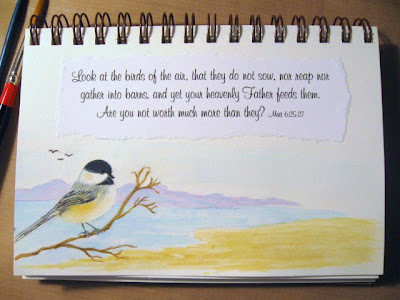 Look at the birds of the air, that they do not sow, nor reap nor
gather into barns, and yet your heavenly Father feeds them.
Are you not worth much more than they? Matt 6:25-27